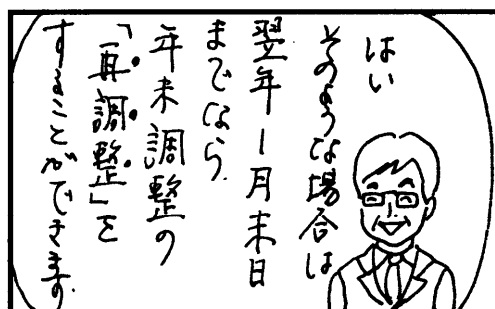 はい
そのような場合は
翌年1月末日
までなら、
年末調整の
「再調整」を
することができます。